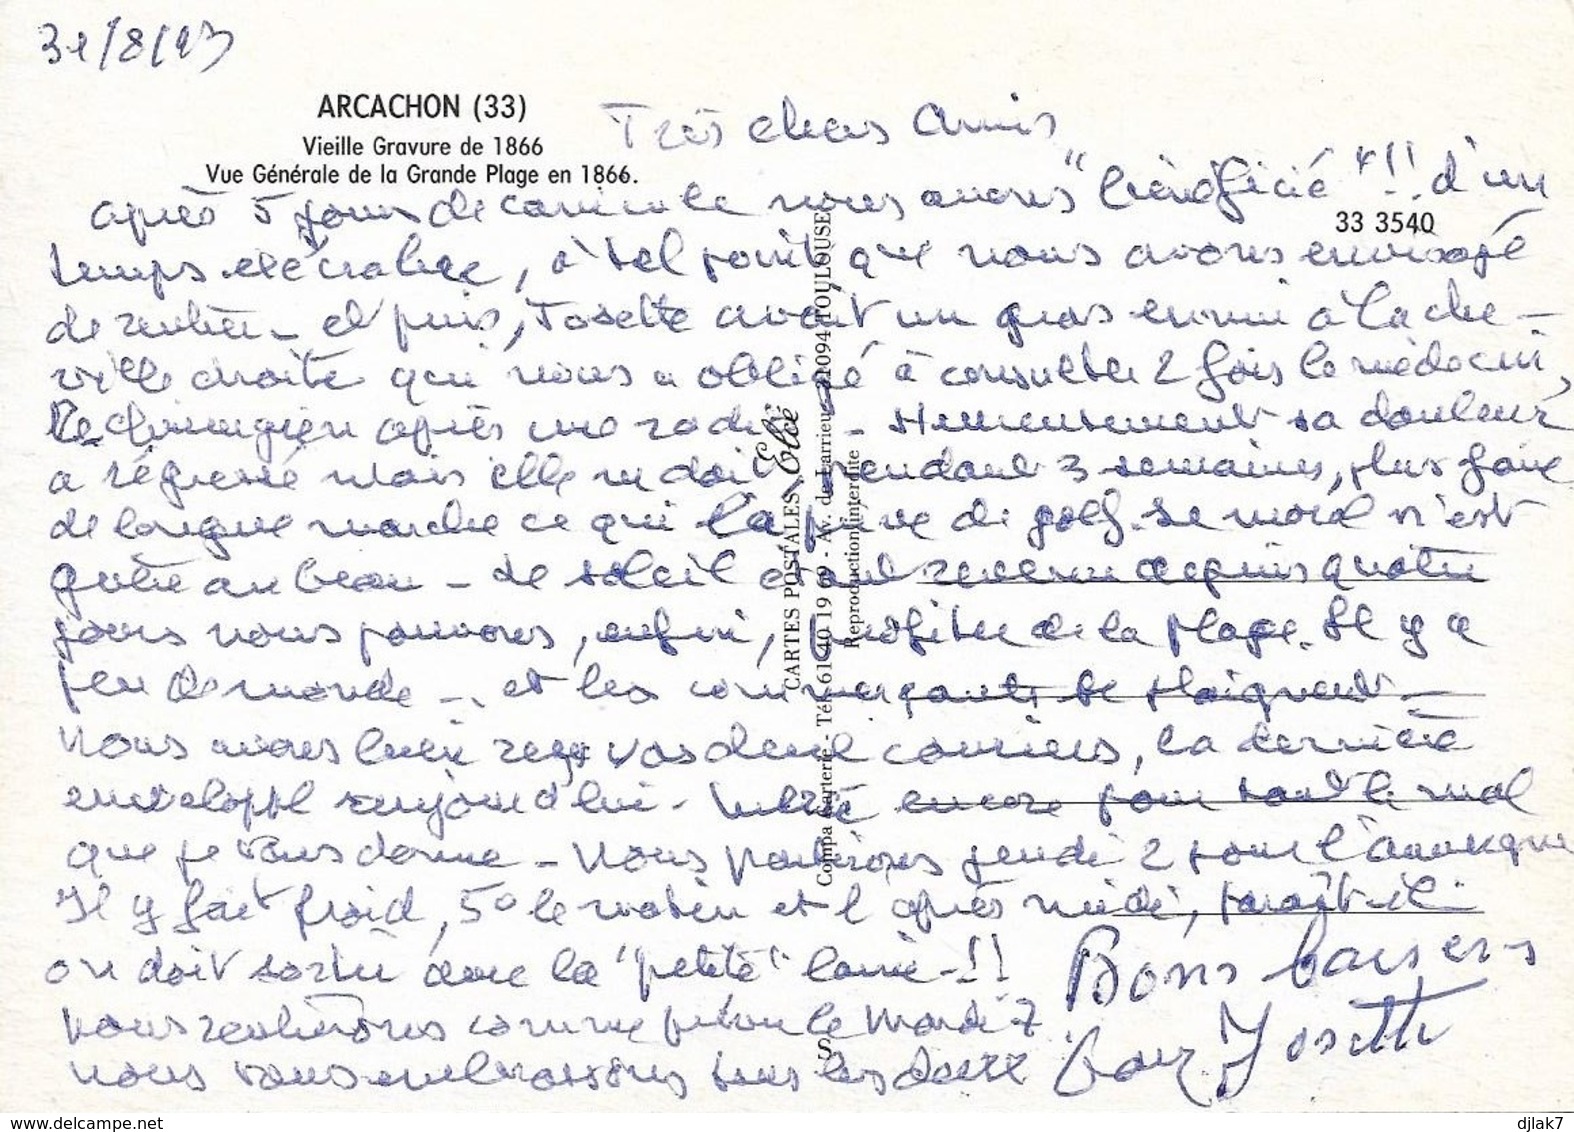 31/8/93
ARCACHON (33)
Vieille Gravure de 1866
Vue Générale de la Grande Plage en 1866.
33 3540
Très chers Amis
après 5 jours de canicule nous avons "bénéficié"!! d'un
temps exécrable, à tel point que nous avons envisagé
de rentrer - et puis, Josette avait un gros ennui à la che-
ville droite qui nous a obligé à consulter 2 fois le médecin,
le chirurgien après une radio - Heureusement sa douleur
a régressé mais elle ne doit pendant 3 semaines, plus faire
de longue marche ce qui la prive de golf. Le moral n'est
guère au beau - Le soleil étant revenu depuis quatre
jours nous pouvons, enfin, profiter de la plage. Il y a
peu de monde - et les commerçants se plaignent -
Nous avons bien reçu vos deux courriers, la dernière
enveloppe aujourd'hui - Merci encore pour tout le mal
que je vous donne - Nous partirons jeudi 2 pour l'Auvergne
Il y fait froid, 5° le matin et l'après midi, paraît-il
on doit sortir avec la "petite" laine -!!
Nous rentrerons comme prévu le Mardi 7
nous vous embrassons tous les deux
Bons baisers
Josette
CARTES POSTALES Cloé
Compa Carterie - Tél. 61 40 19 69 - Av. de Larrieu 31094 TOULOUSE
Reproduction interdite
S
www.delcampe.net
djlak7